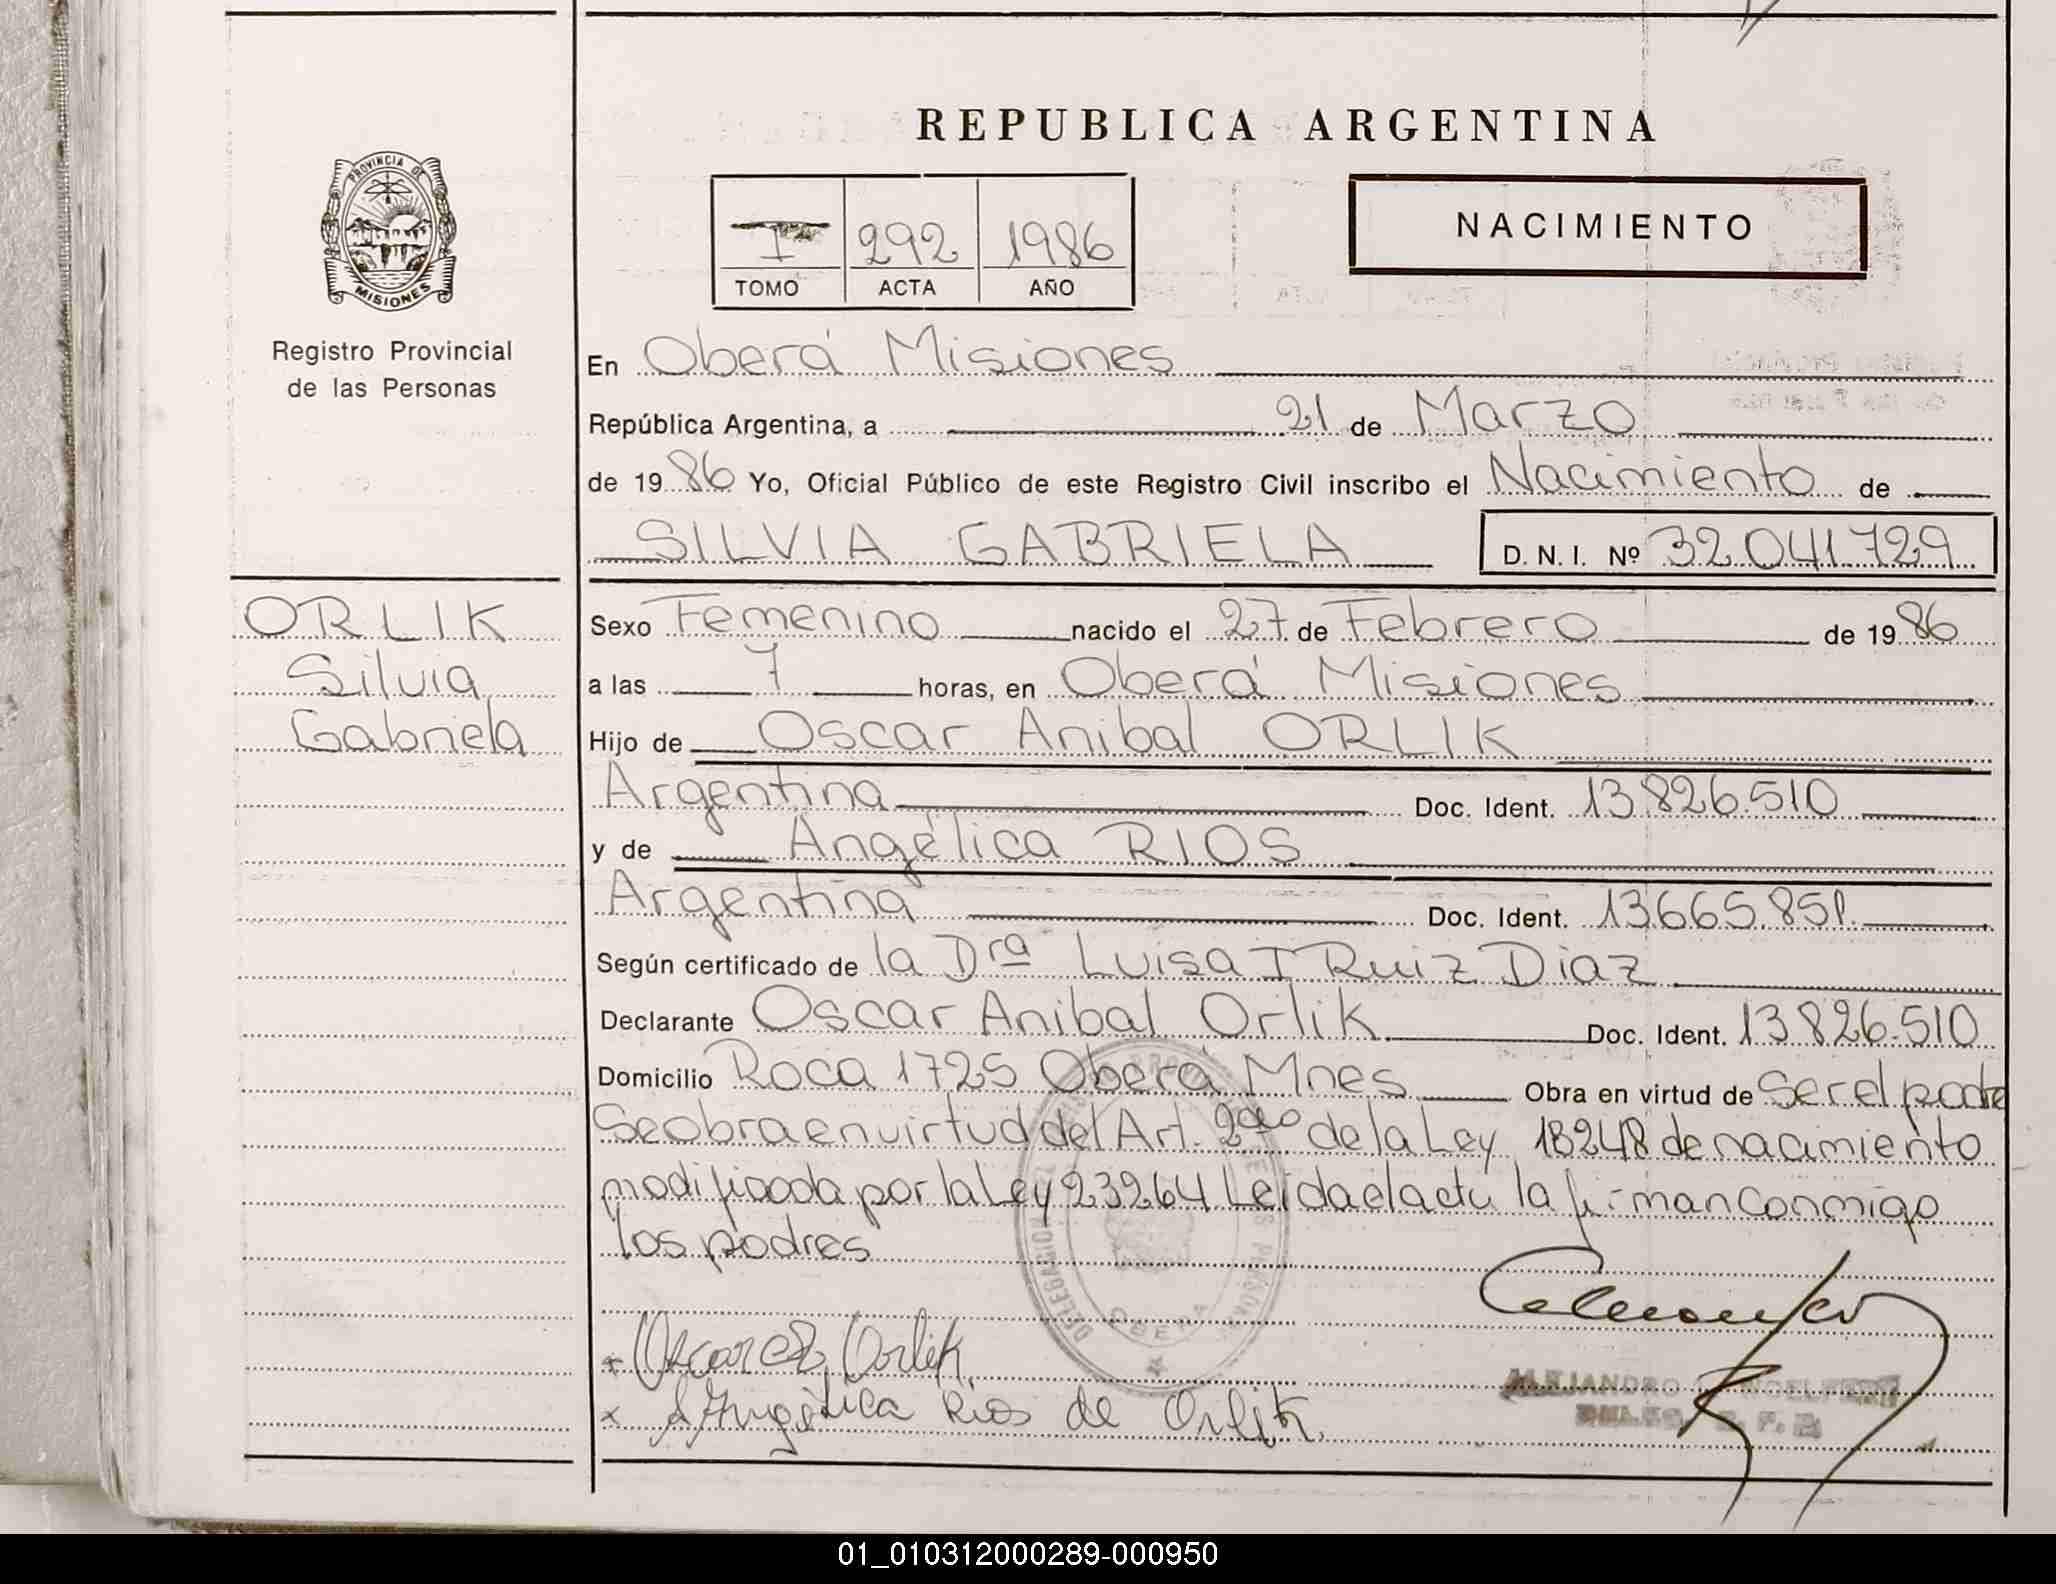 REPUBLICA ARGENTINA
PROVINCIA DE
MISIONES
Registro Provincial
de las Personas
I 292 1986
TOMO ACTA AÑO
NACIMIENTO
En Oberá Misiones
República Argentina, a 21 de Marzo
de 1986 Yo, Oficial Público de este Registro Civil inscribo el Nacimiento de
SILVIA GABRIELA D.N.I. Nº 32.041.729
ORLIK
Silvia
Gabriela
Sexo Femenino nacido el 27 de Febrero de 1986
a las 7 horas, en Oberá Misiones
Hijo de Oscar Anibal ORLIK
Argentina Doc. Ident. 13.826.510
y de Angélica RIOS
Argentina Doc. Ident. 13.665.851.
Según certificado de la Dra Luisa I Ruiz Diaz
Declarante Oscar Anibal Orlik Doc. Ident. 13.826.510
Domicilio Roca 1725 Oberá Mnes Obra en virtud de Ser el padre
Se obra en virtud del Art. 2do de la Ley 18248 de nacimiento
modificada por la Ley 23264 Leida el acta la firman conmigo
los padres
DELEGACION
OBERA
x Oscar Orlik
x Angélica Rios de Orlik
ALEJANDRO
01_010312000289-000950